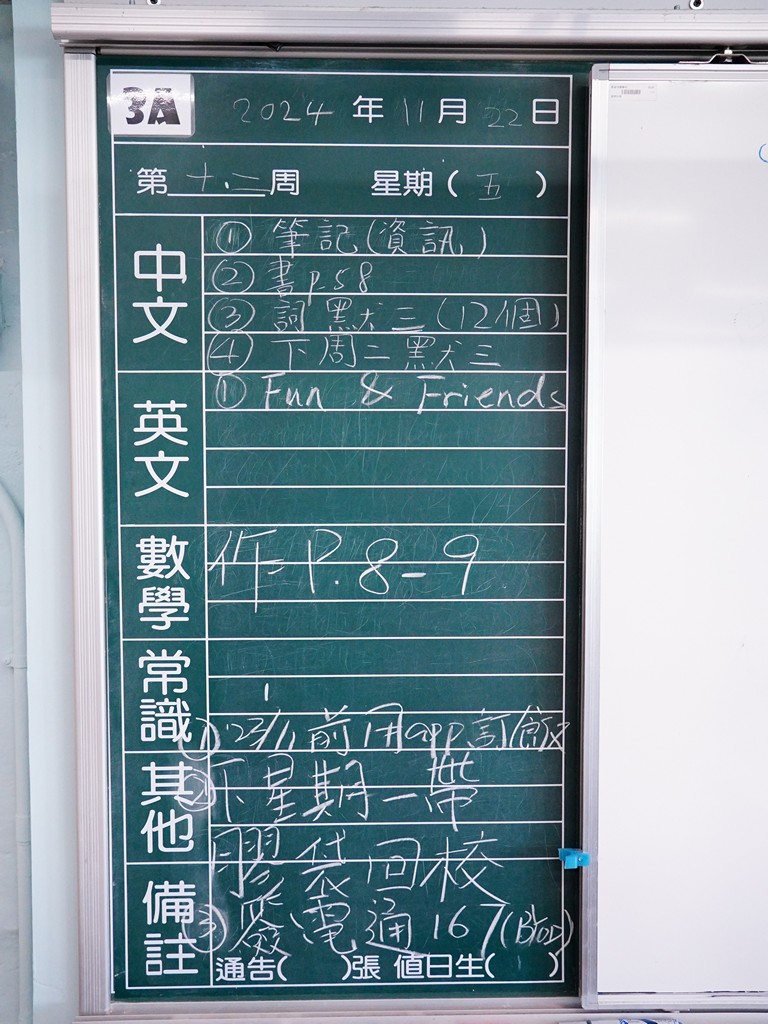 3A 2024 年 11 月 22 日
第 十二 周 星期 ( 五 )
中文
① 筆記(資訊)
② 書p.58
③ 詞默三(12個)
④ 下周二默三
英文
① Fun & Friends
數學
作 P.8-9
常識
① 23/11前用app訂飯
其他
② 下星期一帶
膠袋回校
備註
③ 發電通167
通告( )張 值日生( 1 )